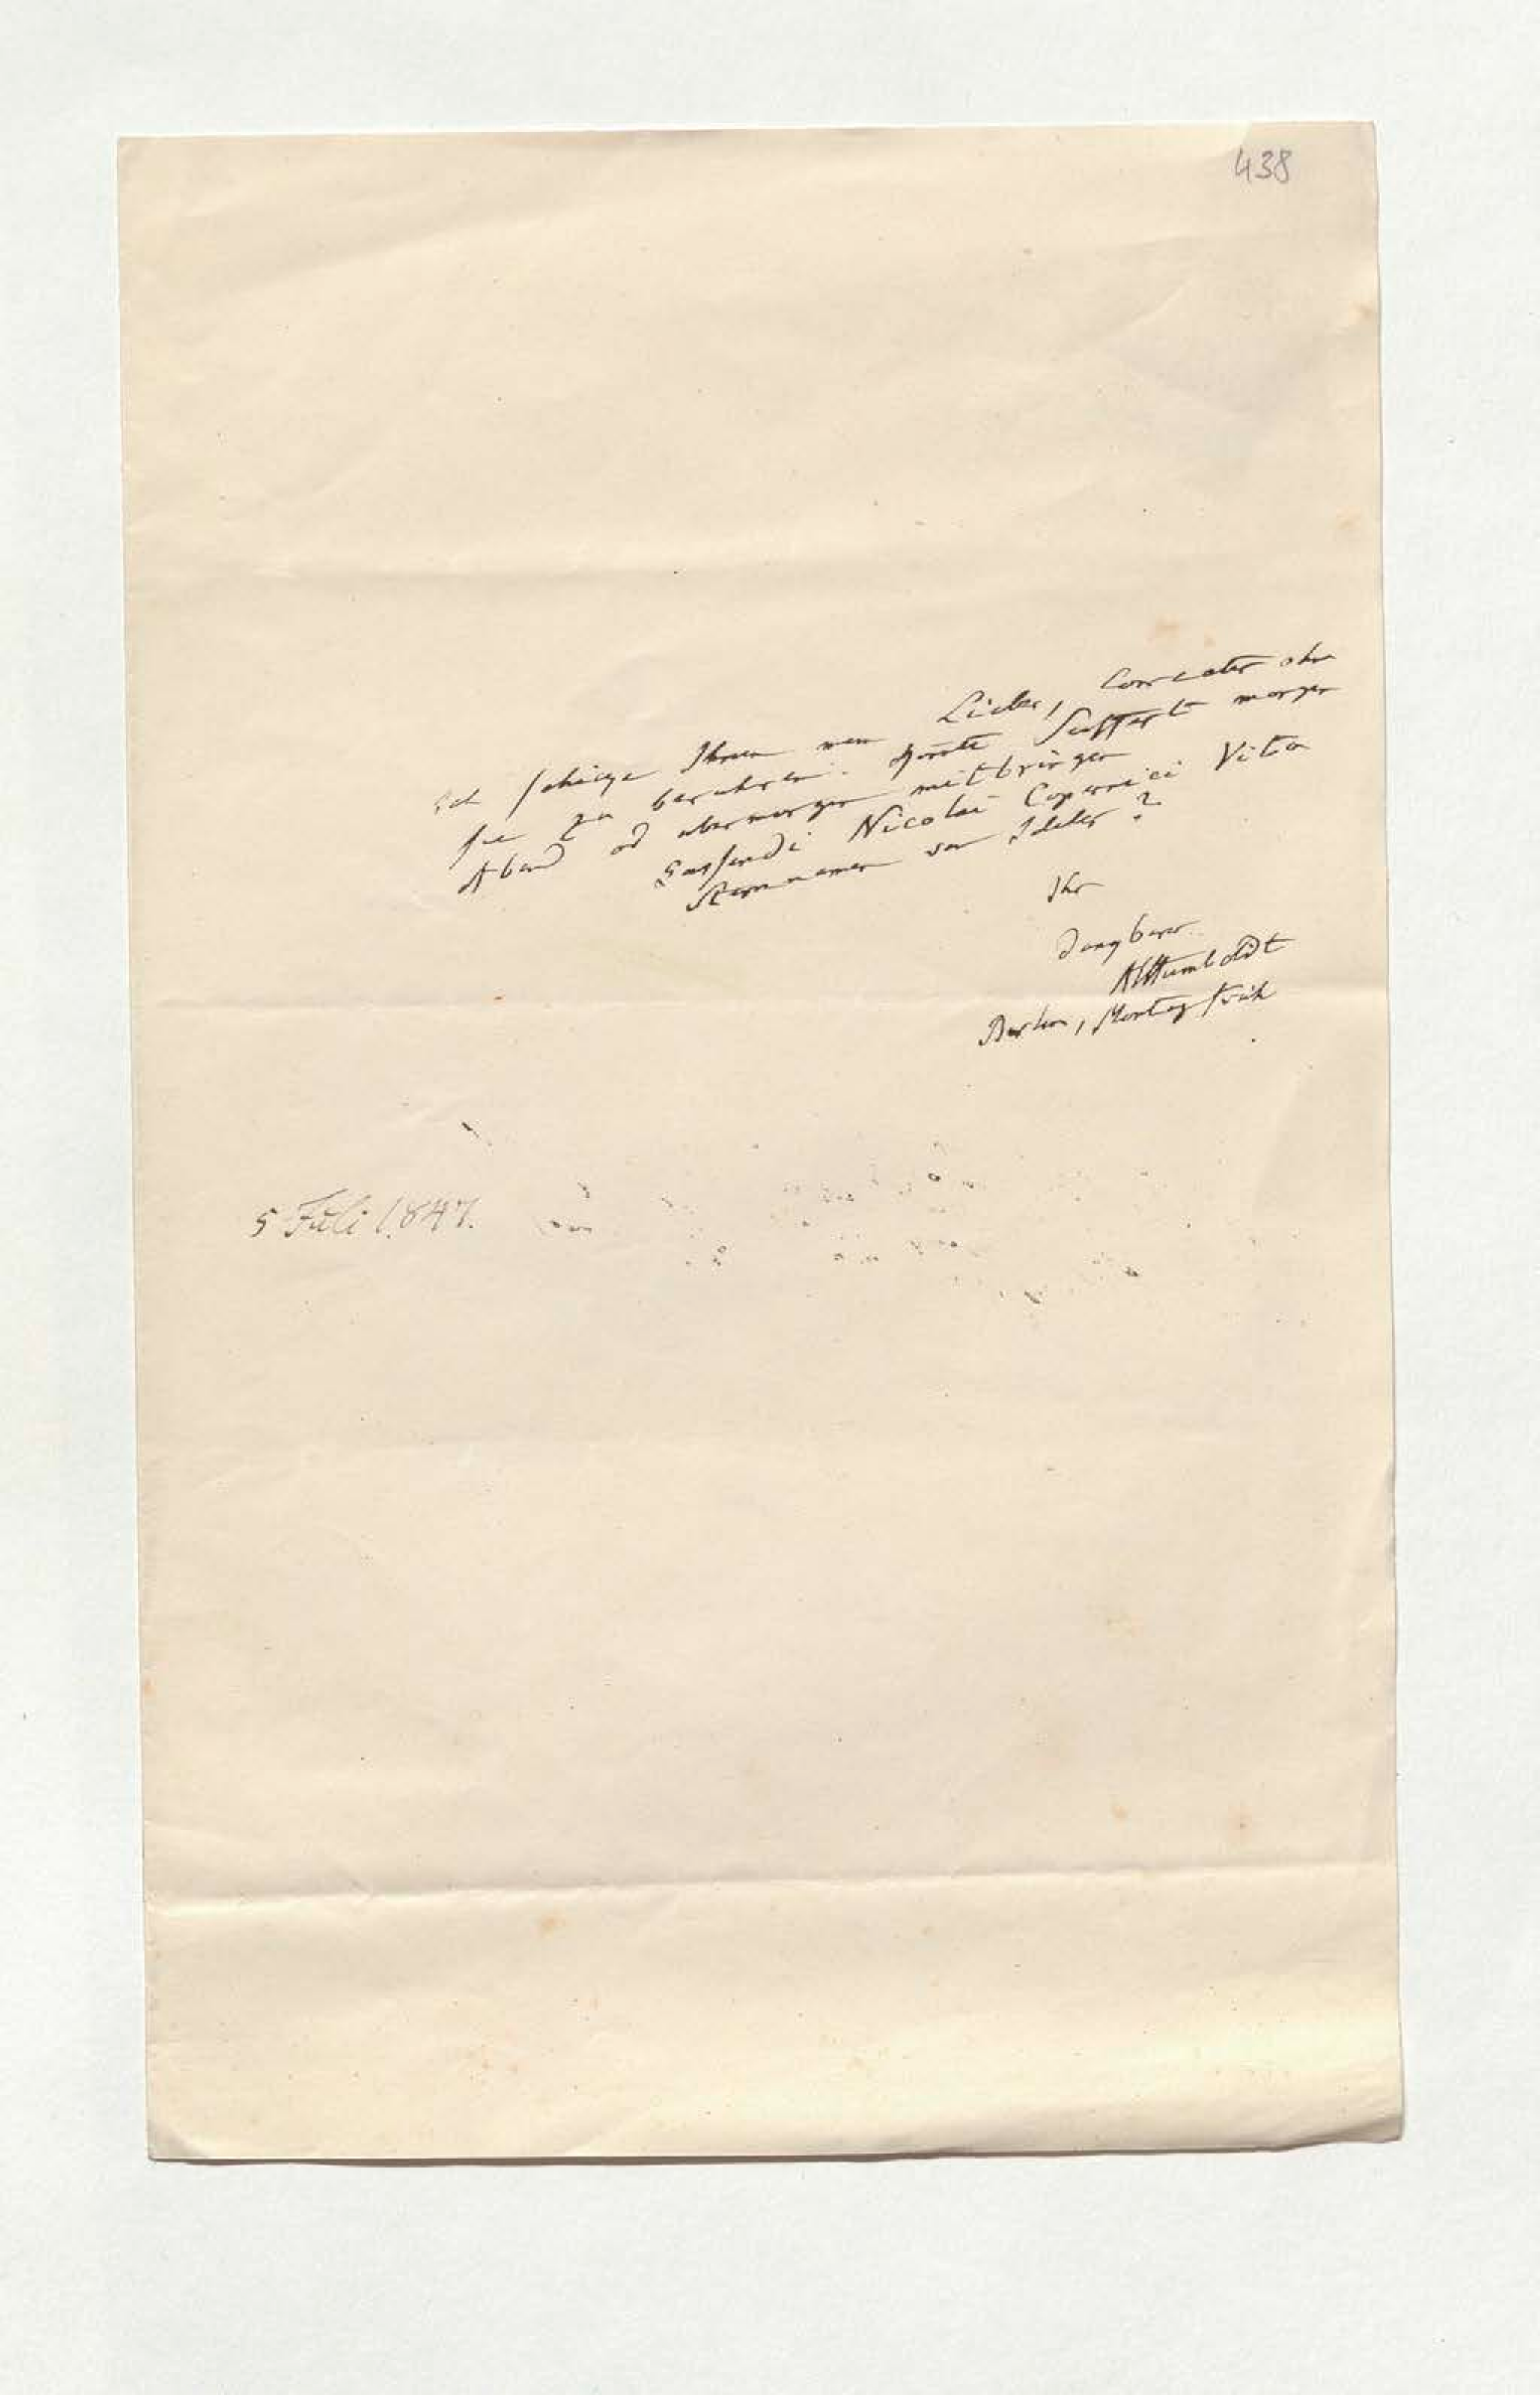 438
Ich schicke Ihnen mein Lieber, Correctur ohne
sie zu berühren. Könte Seiffert morgen
Abend od übermorgen mitbringen
Gassendi Nicolai Copernici Vita
Sternnamen von Ideler?
Ihr
dankbarer
AlHumboldt
Berlin, Montag früh
5 Juli 1847.